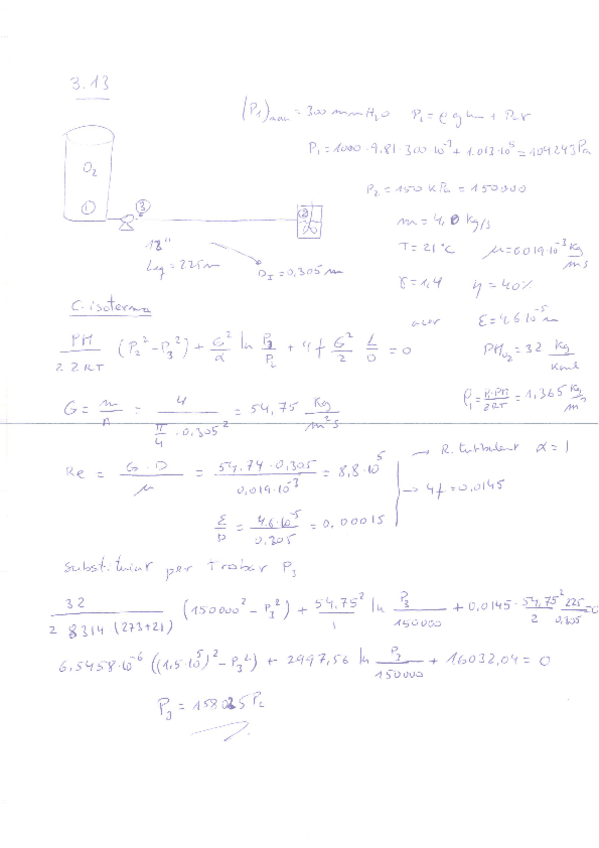 3.13
(P₁)man = 300 mm H₂O P₁ = ρ g h + Patm
P₁ = 1000 · 9.81 · 300·10⁻³ + 1.013·10⁵ = 104243 Pa
O₂
P₂ = 150 kPa = 150000
① ③ ②
m = 4,0 kg/s
18"
Leq = 225 m
D_I = 0,305 m
T = 21 °C μ = 0,019·10⁻³ kg/m s
γ = 1,4 η = 40%
C. isoterma
acer ε = 4.6 10⁻⁵ m
PM/(2 z RT) (P₂² − P₃²) + G²/α ln P₃/P₂ + 4f G²/2 L/D = 0
PM O₂ = 32 kg/kmol
ρ₁ = P·PM/zRT = 1,365 kg/m³
G = m/A = 4/(π/4 · 0.305²) = 54,75 kg/m² s
Re = G·D/μ = 54.74·0,305/0,019·10⁻³ = 8,8·10⁵ → R. turbulent α = 1
→ 4f = 0,0145
ε/D = 4.6·10⁻⁵/0.305 = 0.00015
Substituint per trobar P₃
32/(2 8314 (273+21)) (150000² − P₃²) + 54,75²/1 ln P₃/150000 + 0,0145 · 54,75²/2 225/0,305 = 0
6,5458·10⁻⁶ ((1,5·10⁵)² − P₃²) + 2997,56 ln P₃/150000 + 16032,04 = 0